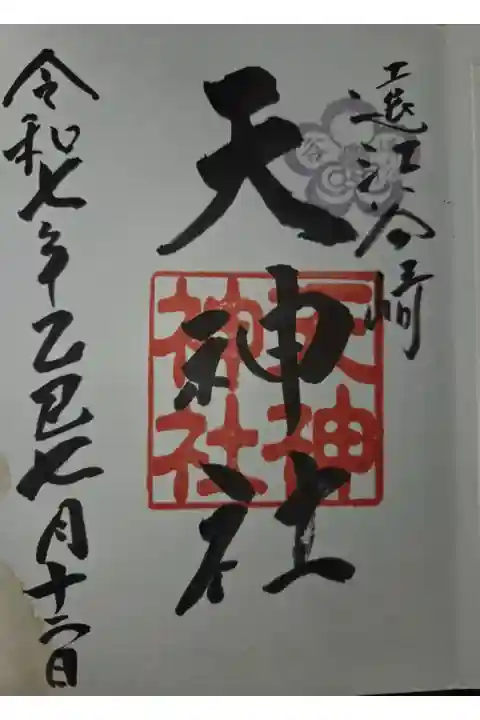 遠江谷﨑
天神社
天神
神社
令和七年乙巳七月十二日